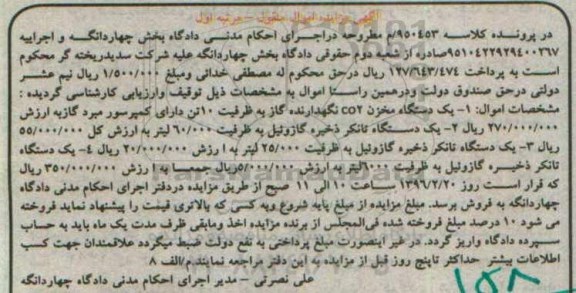 آگهی مزایده اموال منقول - مرتبه اول
در پرونده کلاسه ۹۵۰۴۵۳/م مطروحه دراجرای احکام مدنی دادگاه بخش چهاردانگه و اجراییه
۹۵۱۰۴۲۲۹۲۹۴۰۰۲۶۷صادره از شعبه دوم حقوقی دادگاه بخش چهاردانگه علیه شرکت سدیدریخته گر محکوم
است به پرداخت ۱۲۷/۶۴۳/۴۷۴ ریال درحق محکوم له مصطفی خدائی ومبلغ ۱/۵۰۰/۰۰۰ ریال نیم عشر
دولتی درحق صندوق دولت ودرهمین راستا اموال به مشخصات ذیل توقیف وارزیابی کارشناسی گردیده :
مشخصات اموال: ۱- یک دستگاه مخزن co۲ نگهدارنده گاز به ظرفیت ۱۰تن دارای کمپرسور مبرد گازبه ارزش
۲۷۰/۰۰۰/۰۰۰ ریال ۲- یک دستگاه تانکر ذخیره گازوئیل به ظرفیت ۶۰/۰۰۰ لیتر به ارزش کل ۵۵/۰۰۰/۰۰۰
ریال ۳- یک دستگاه تانکر ذخیره گازوئیل به ظرفیت ۲۵/۰۰۰ لیتر به ارزش ۲۰/۰۰۰/۰۰۰ ریال ۴- یک دستگاه
تانکر ذخیره گازوئیل به ظرفیت ۶۰۰۰لیتر به ارزش ۵/۰۰۰/۰۰۰ریال جمعا به ارزش ۳۵۰/۰۰۰/۰۰۰ ریال
که قرار است روز ۱۳۹۶/۲/۲۰ ساعت ۱۰ الی ۱۱ صبح از طریق مزایده دردفتر اجرای احکام مدنی دادگاه
چهاردانگه به فروش برسد. مبلغ مزایده از مبلغ پایه شروع وبه کسی که بالاتری قیمت را پیشنهاد نماید فروخته
می شود ۱۰ درصد مبلغ فروخته شده فی‌المجلس از برنده مزایده اخذ ومابقی ظرف مدت یک ماه باید به حساب
سپرده دادگاه واریز گردد. در غیر اینصورت مبلغ پرداختی به نفع دولت ضبط میگردد علاقمندان جهت کسب
اطلاعات بیشتر حداکثر تاپنج روز قبل از مزایده به این دفتر مراجعه نمایند.م/الف ۸
علی نصرتی - مدیر اجرای احکام مدنی دادگاه چهاردانگه
۱۵۸